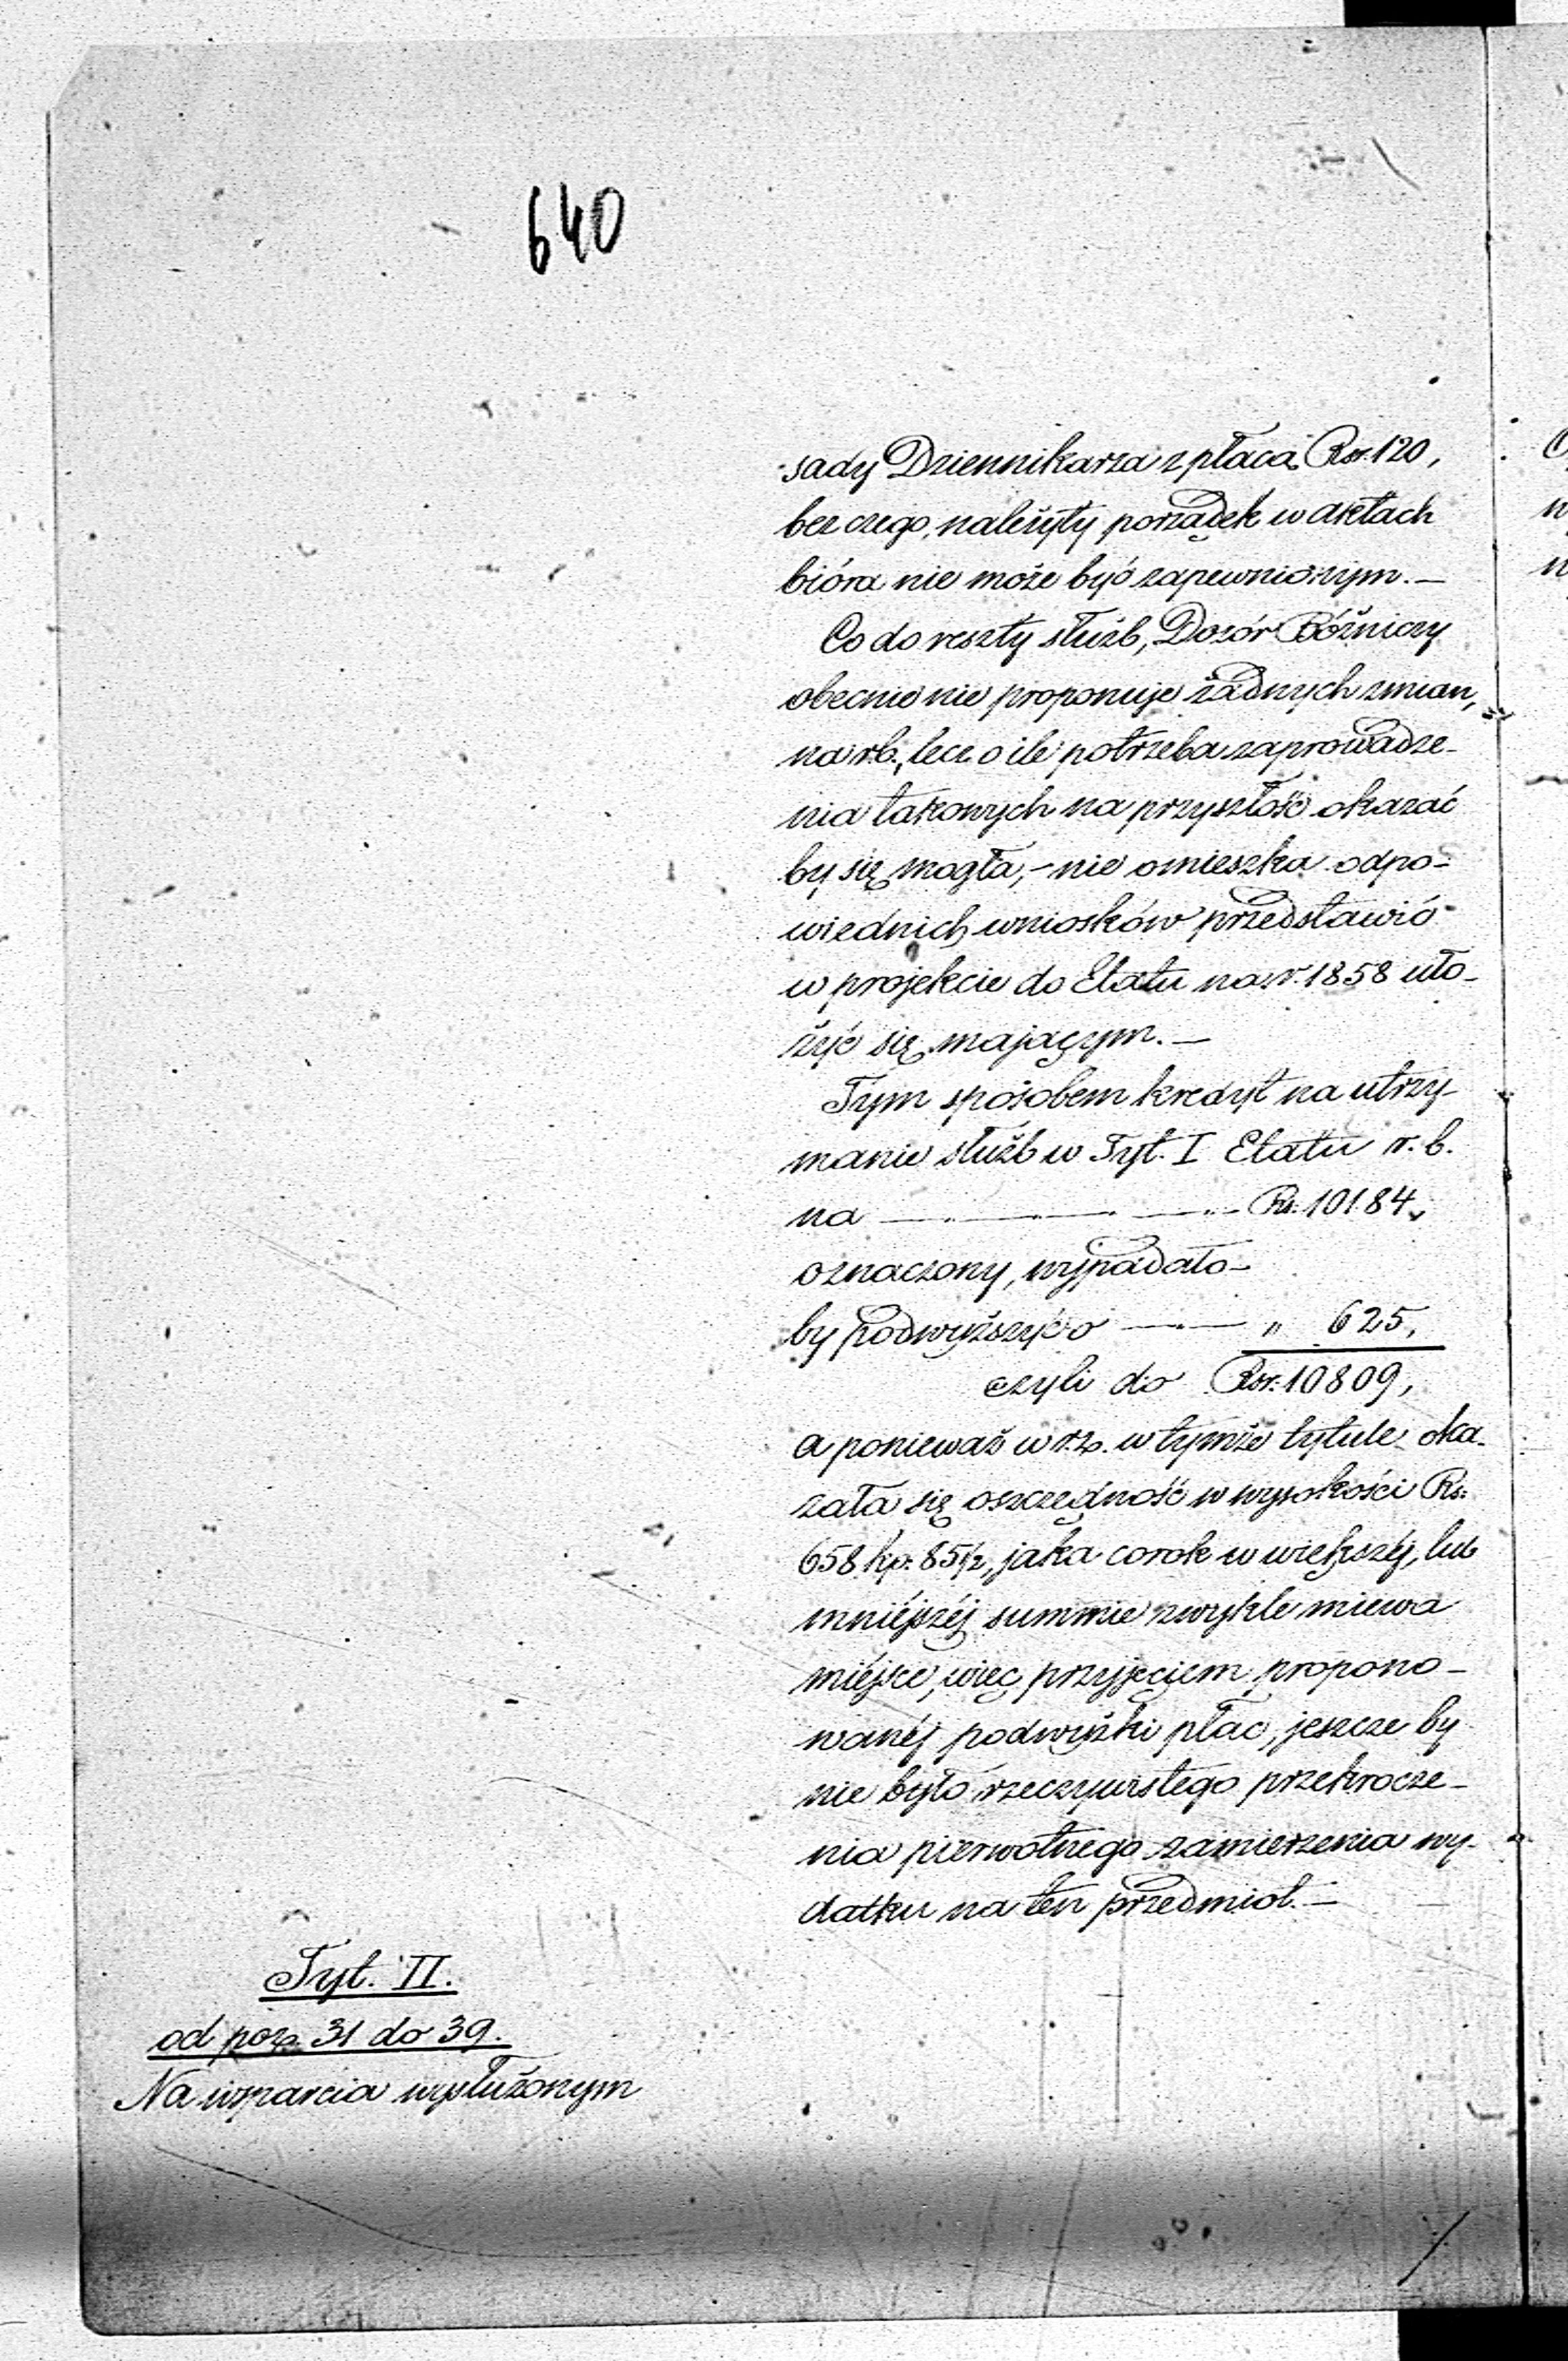 640
sady Dziennikarza z płacą Rsr. 120,
bez czego, należyty porządek w aktach
bióra nie może być zapewnionym. —
Co do reszty służb, Dozór Bóżniczy
obecnie nie proponuje żadnych zmian,
na r.b., lecz o ile potrzeba zaprowadze-
nia takowych na przyszłość okazać
by się mogła, – nie omieszka odpo-
wiednich wniosków przedstawić
w projekcie do Etatu na r. 1858 uło-
żyć się mającym. —
Tym sposobem kredyt na utrzy-
manie służb w Tyt. I Etatu r. b.
na — " — " — " — Rs. 10184,
oznaczony, wypadało-
by podwyższyć o — " — " 625,
czyli do Rsr. 10809,
a ponieważ w r.z. w tymże tytule oka-
zała się oszczędność w wysokości Rs.
658 kp. 85½, jaka corok w większéj, lub
mniéjszéj summie zwykle miewa
miéjsce, więc przyjęciem propono-
wanéj podwyżki płac, jeszcze by
nie było rzeczywistego przekrocze-
nia pierwotnego zamierzenia wy-
datku na ten przedmiot. —
Tyt. II.
od poz. 31 do 39.
Na wsparcia wysłużonym